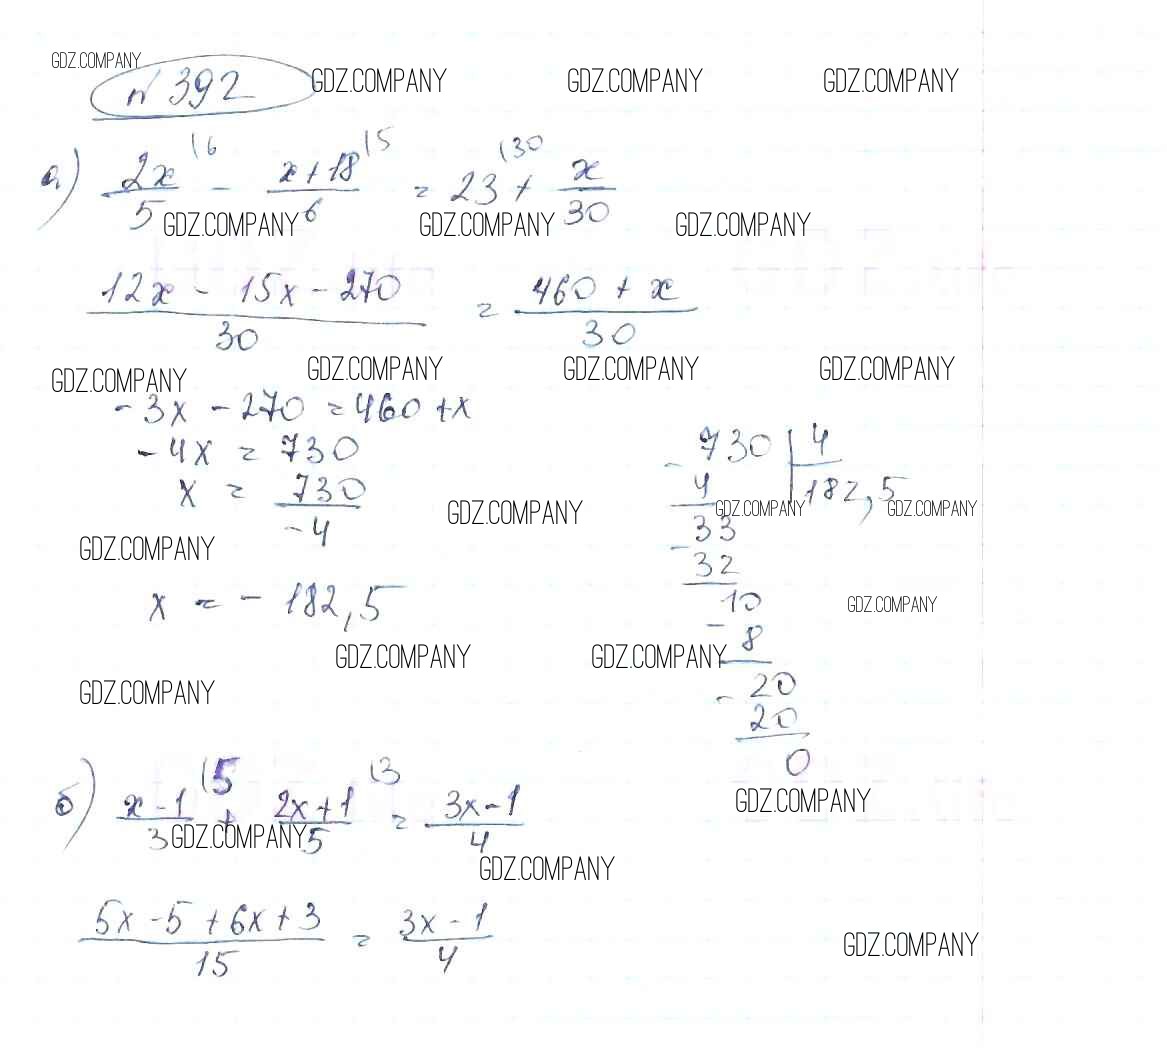 GDZ.COMPANY
№ 392 GDZ.COMPANY GDZ.COMPANY GDZ.COMPANY
а) 2x/5 |6 - x+18/6 |5 = 23 |30 + x/30
GDZ.COMPANY GDZ.COMPANY GDZ.COMPANY
12x - 15x - 270/30 = 460 + x/30
GDZ.COMPANY GDZ.COMPANY GDZ.COMPANY GDZ.COMPANY
-3x - 270 = 460 + x
-4x = 730
x = 730/-4
GDZ.COMPANY
GDZ.COMPANY
x = - 182,5
- 730 | 4
4 | 182,5
GDZ.COMPANY GDZ.COMPANY
- 33
32
10
GDZ.COMPANY
- 8
GDZ.COMPANY GDZ.COMPANY
GDZ.COMPANY
- 20
20
0
б) x-1/3 |5 + 2x+1/5 |3 = 3x-1/4
GDZ.COMPANY
GDZ.COMPANY
GDZ.COMPANY
5x - 5 + 6x + 3/15 = 3x - 1/4
GDZ.COMPANY